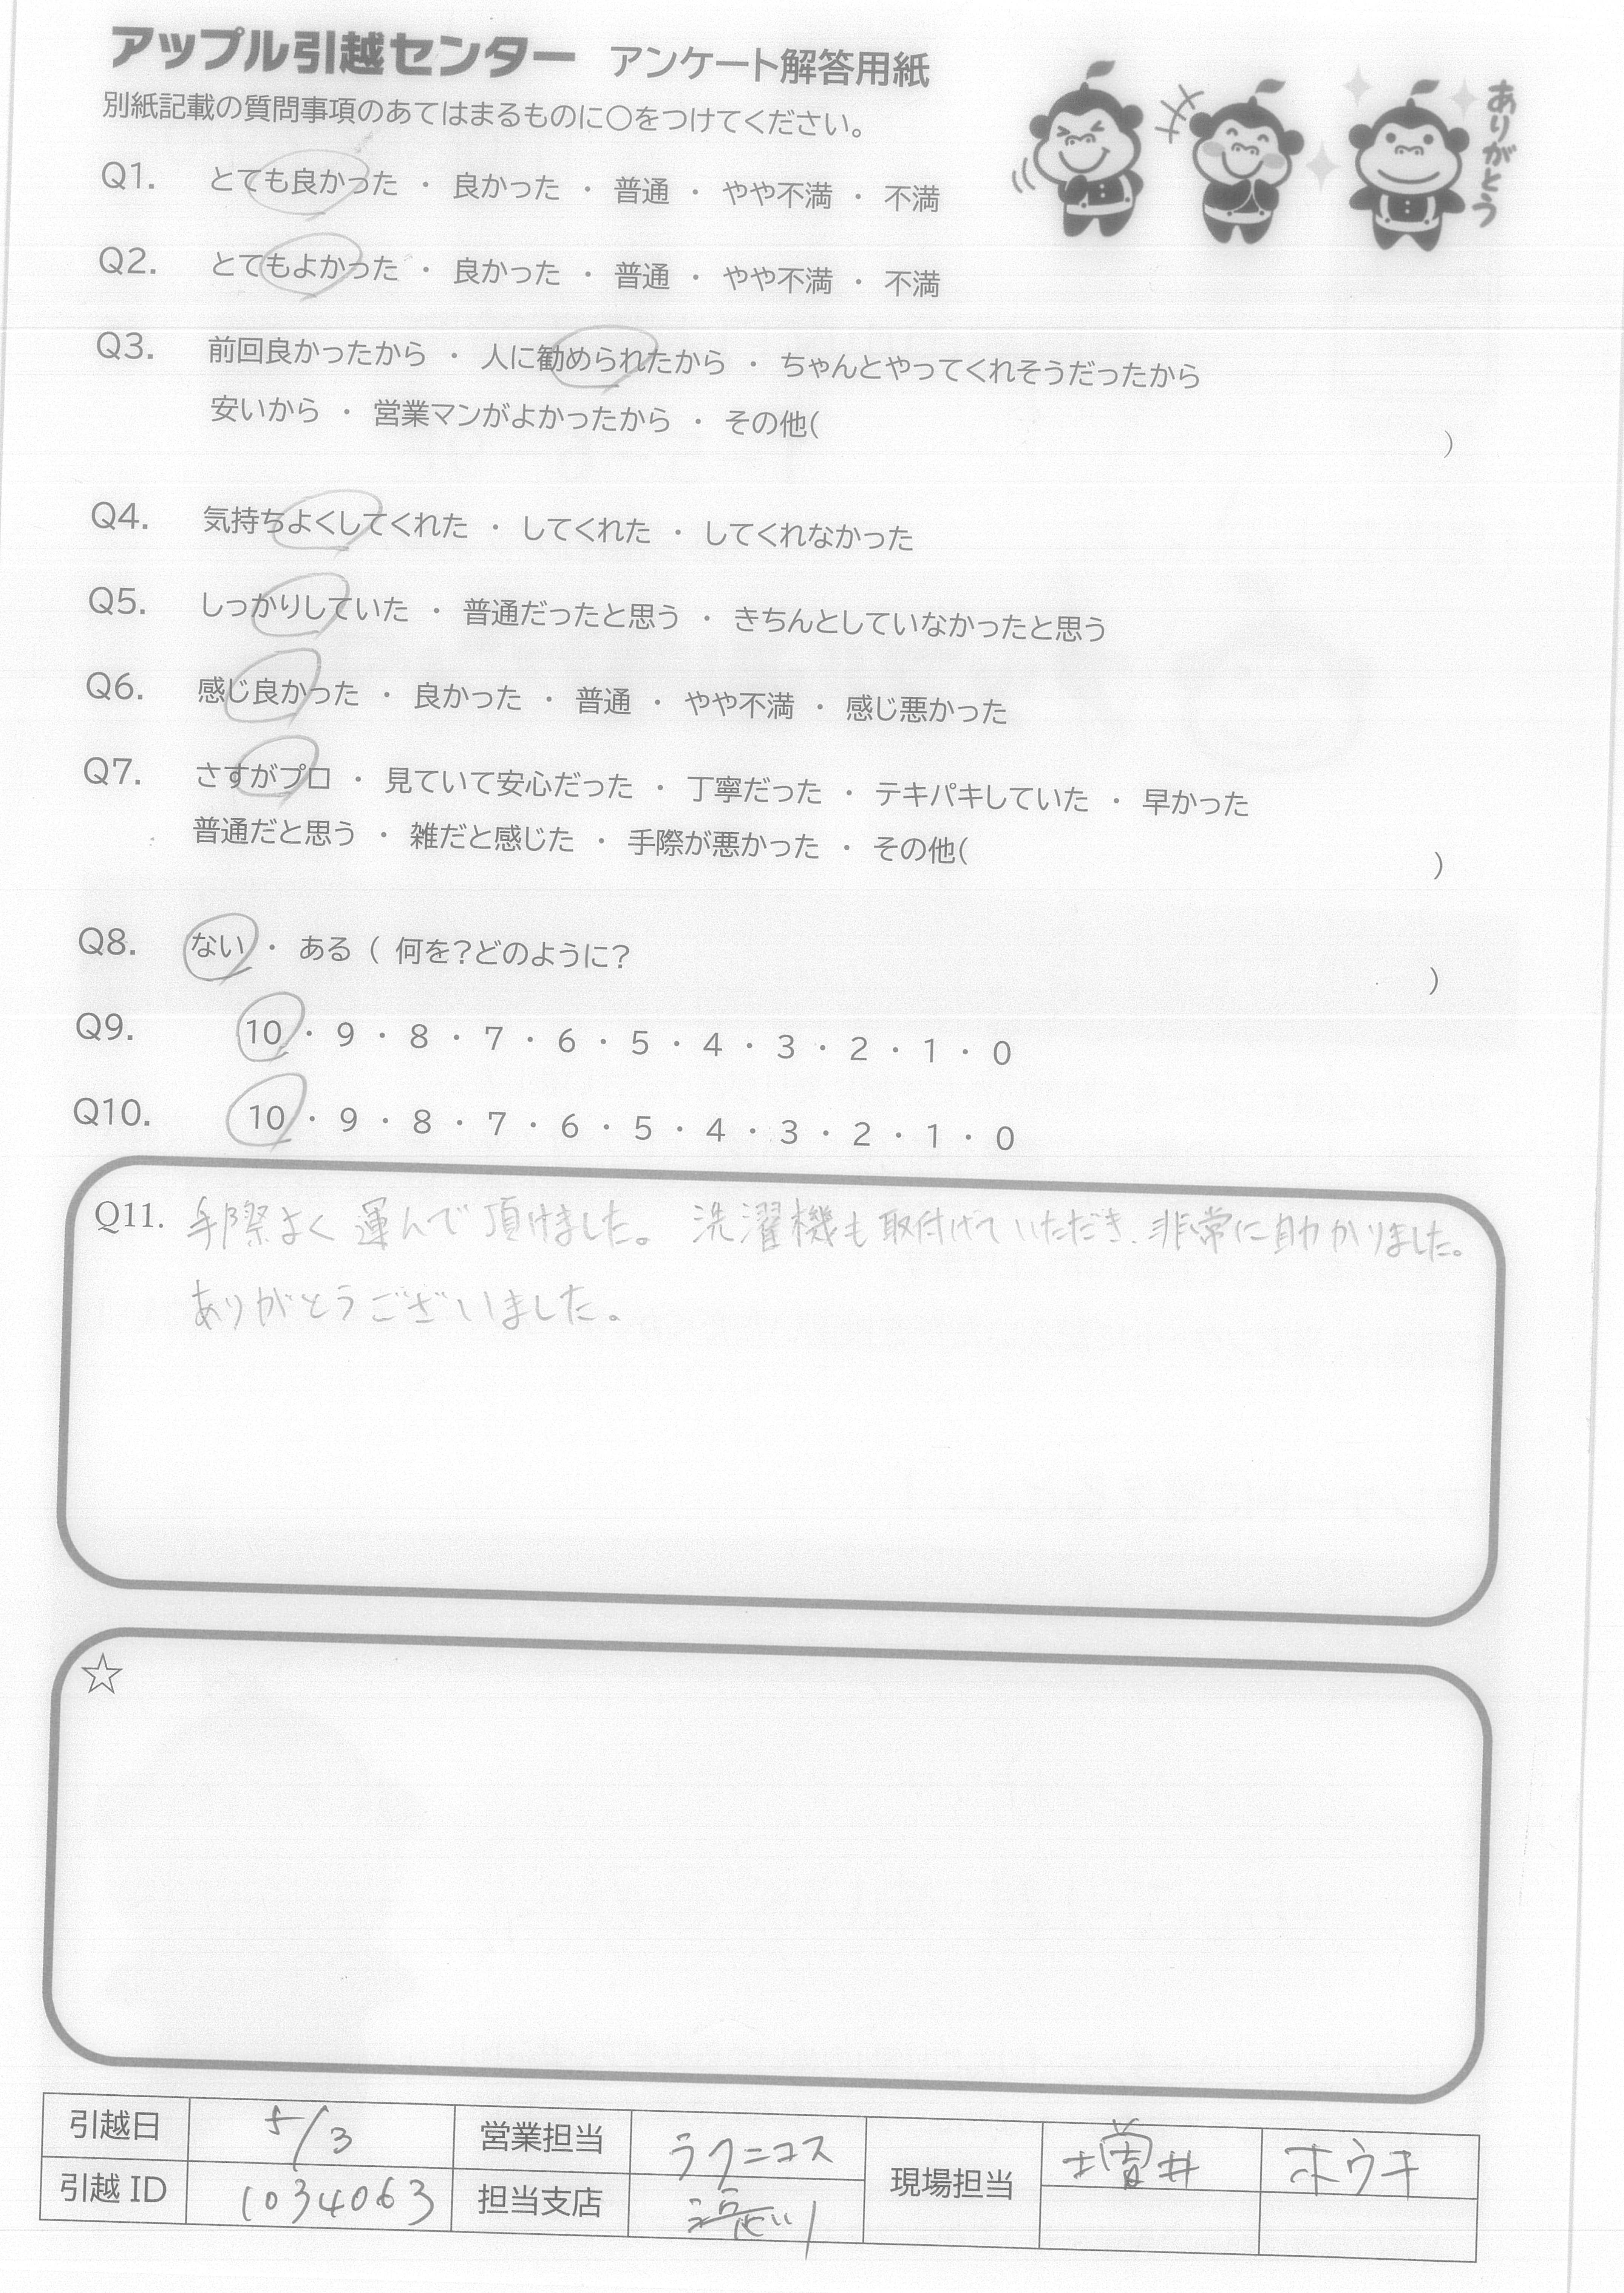 アップル引越センター アンケート解答用紙
別紙記載の質問事項のあてはまるものに○をつけてください。
ありがとう
Q1. とても良かった ・ 良かった ・ 普通 ・ やや不満 ・ 不満
Q2. とてもよかった ・ 良かった ・ 普通 ・ やや不満 ・ 不満
Q3. 前回良かったから ・ 人に勧められたから ・ ちゃんとやってくれそうだったから
安いから ・ 営業マンがよかったから ・ その他( )
Q4. 気持ちよくしてくれた ・ してくれた ・ してくれなかった
Q5. しっかりしていた ・ 普通だったと思う ・ きちんとしていなかったと思う
Q6. 感じ良かった ・ 良かった ・ 普通 ・ やや不満 ・ 感じ悪かった
Q7. さすがプロ ・ 見ていて安心だった ・ 丁寧だった ・ テキパキしていた ・ 早かった
普通だと思う ・ 雑だと感じた ・ 手際が悪かった ・ その他( )
Q8. ない ・ ある ( 何を?どのように? )
Q9. 10 ・ 9 ・ 8 ・ 7 ・ 6 ・ 5 ・ 4 ・ 3 ・ 2 ・ 1 ・ 0
Q10. 10 ・ 9 ・ 8 ・ 7 ・ 6 ・ 5 ・ 4 ・ 3 ・ 2 ・ 1 ・ 0
Q11. 手際よく運んで頂けました。 洗濯機も取付けていただき、非常に助かりました。
ありがとうございました。
☆
引越日 5/3 営業担当 ラクニコス 現場担当 増井 ホウキ
引越ID 1034063 担当支店